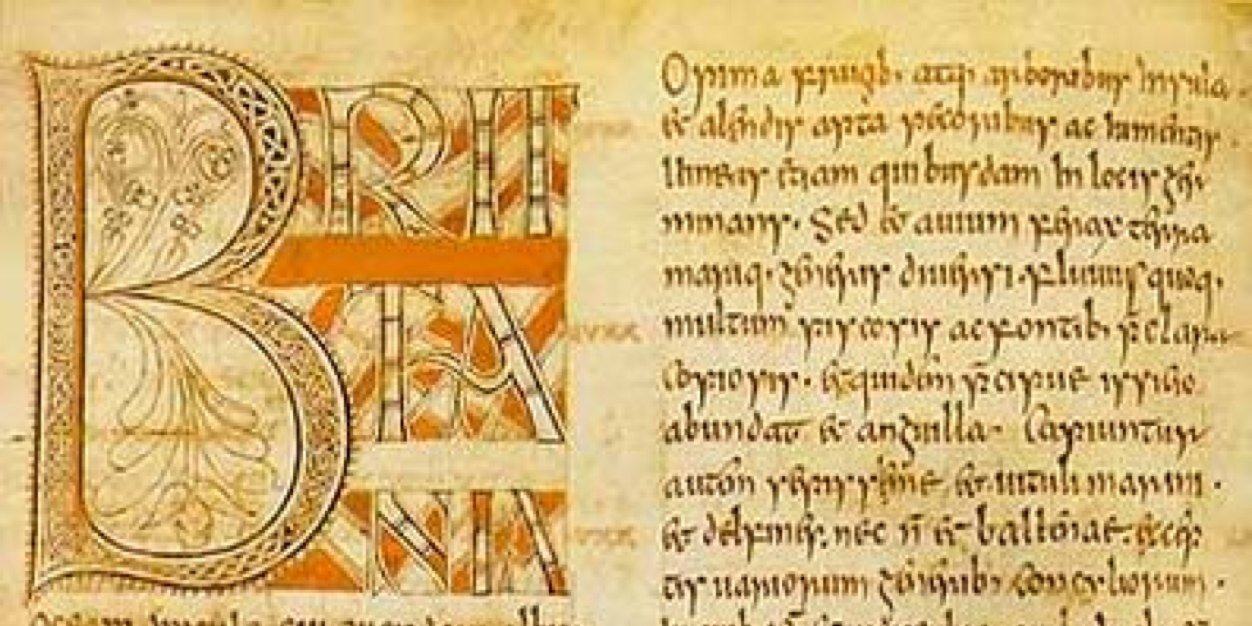 BRIT
TA
NIA
Opima frugib· atq· arboribus insula·
et alendis apta pecoribus ac iumentis·
uineas etiam quibusdam in locis ger
minans· Sed et auium ferax terra
mariq· generis diuersi· fluuiis quoq·
multum piscosis ac fontib· preclara
copiosis· et quidem precipue issicio
abundat et anguilla· Capiuntur
autem sepissime et uituli marini·
et delfines nec n̄ et ballenae· excep
tis uariorum generib· concyliorum·